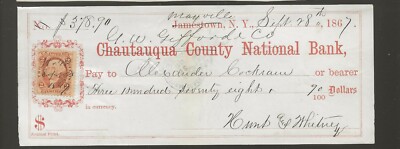 Mayville
$ 378.70 Jamestown, N.Y., Sept. 28th 1867.
G. W. Gifford & Co
Chautauqua County National Bank,
Pay to Alexander Cochran or bearer
Three hundred seventy eight & 70/100 Dollars
in currency.
$ Hunt & Whitney